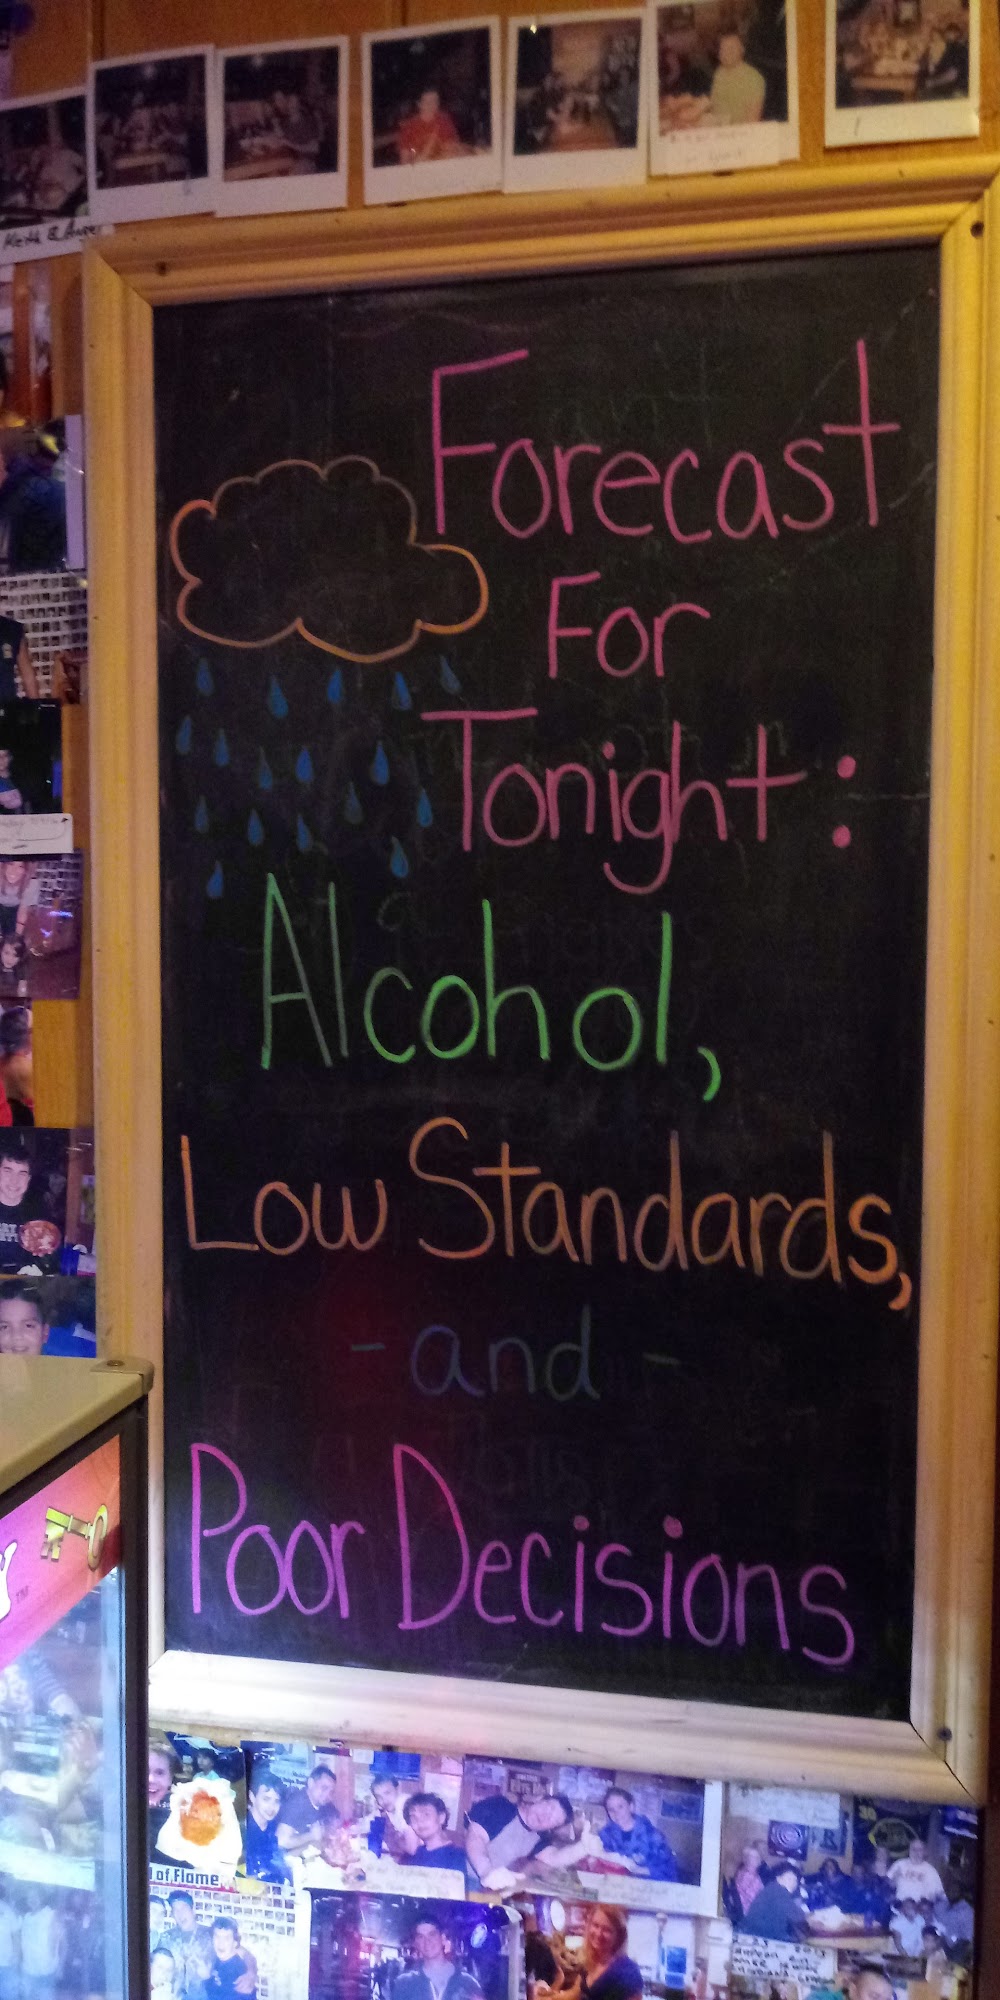 Keith & Angel
Forecast
For
Tonight:
Alcohol,
Low Standards,
- and -
Poor Decisions
TM
of Flame